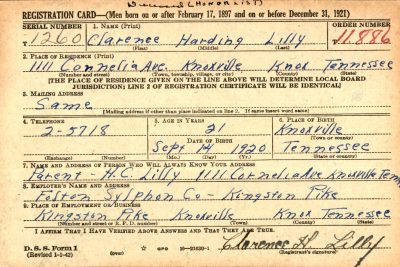 REGISTRATION CARD—(Men born on or after February 17, 1897 and on or before December 31, 1921)
SERIAL NUMBER 1. NAME (Print) ORDER NUMBER
T 1260 Clarence Harding Lilly T 11,886
(First) (Middle) (Last)
2. PLACE OF RESIDENCE (Print)
1111 Connelia Ave. Knoxville Knox Tennessee
(Number and street) (Town, township, village, or city) (County) (State)
[THE PLACE OF RESIDENCE GIVEN ON THE LINE ABOVE WILL DETERMINE LOCAL BOARD
JURISDICTION; LINE 2 OF REGISTRATION CERTIFICATE WILL BE IDENTICAL]
3. MAILING ADDRESS
Same
[Mailing address if other than place indicated on line 2. If same insert word same]
4. TELEPHONE 5. AGE IN YEARS 6. PLACE OF BIRTH
2-5718 21 Knoxville
DATE OF BIRTH (Town or county)
Sept 14 1920 Tennessee
(Exchange) (Number) (Mo.) (Day) (Yr.) (State or country)
7. NAME AND ADDRESS OF PERSON WHO WILL ALWAYS KNOW YOUR ADDRESS
Parent - H.C. Lilly 1111 Cornelia Ave Knoxville Tenn
8. EMPLOYER'S NAME AND ADDRESS
Fulton Sylphon Co - Kingston Pike
9. PLACE OF EMPLOYMENT OR BUSINESS
Kingston Pike Knoxville Knox Tennessee
(Number and street or R. F. D. number) (Town) (County) (State)
I AFFIRM THAT I HAVE VERIFIED ABOVE ANSWERS AND THAT THEY ARE TRUE.
D. S. S. Form 1 GPO 16—21630-1 Clarence H. Lilly
(Revised 1-1-42) (Registrant's signature)